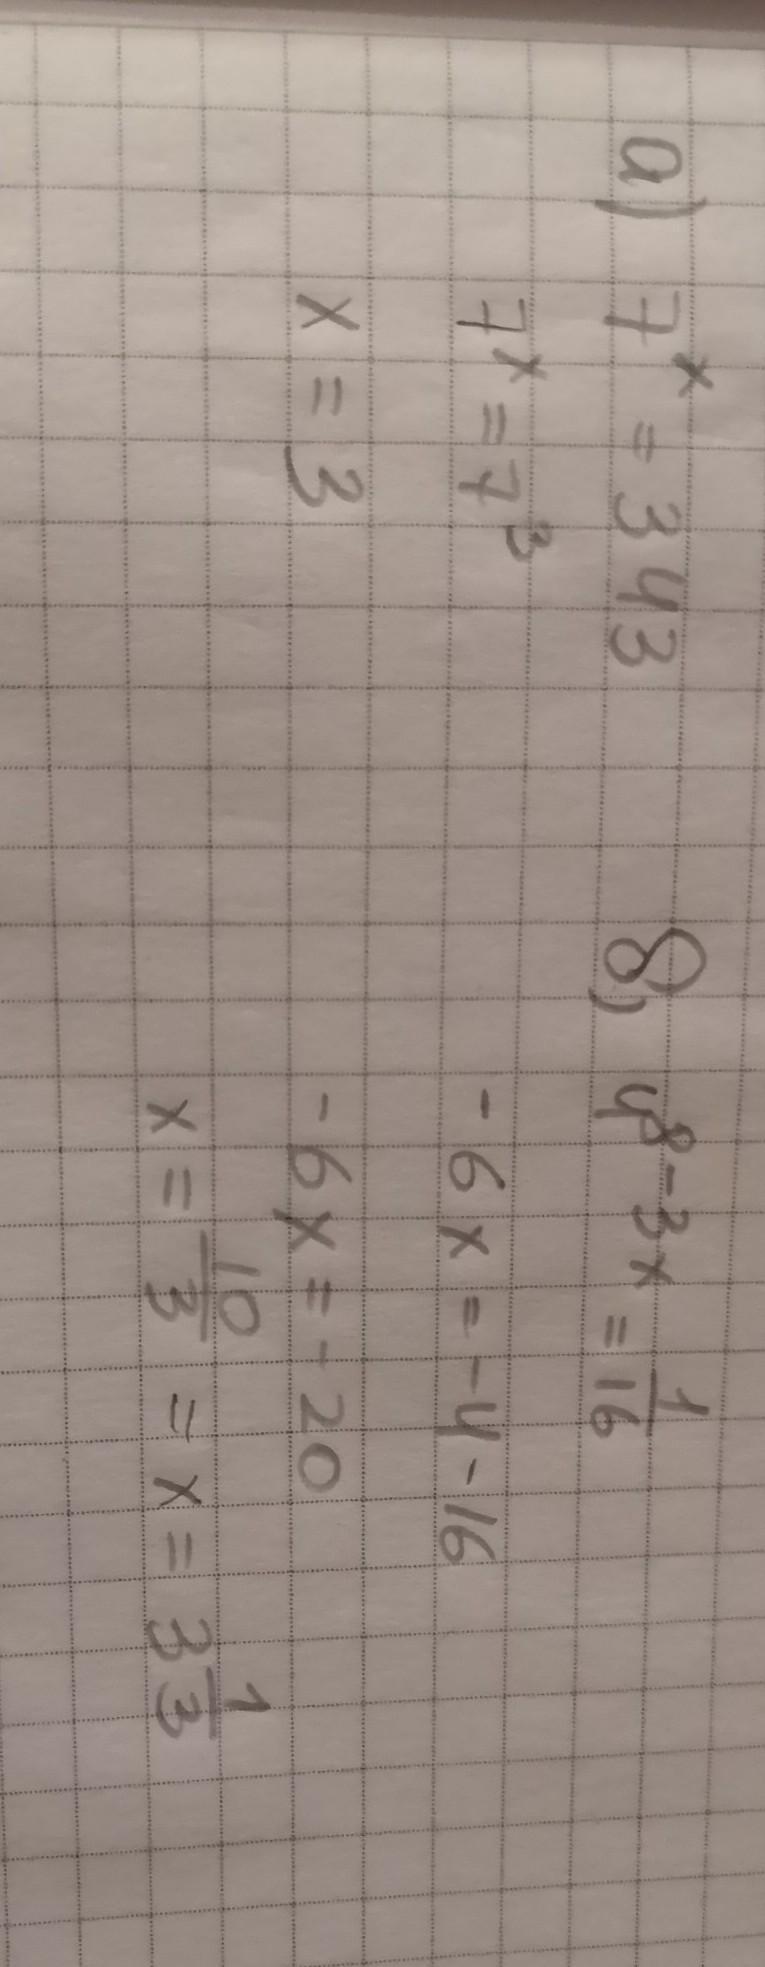 a) 7ˣ = 343
7ˣ = 7³
x = 3
8) 4⁸⁻³ˣ = 1/16
-6x = -4-16
-6x = -20
x = 10/3 = x = 3 1/3